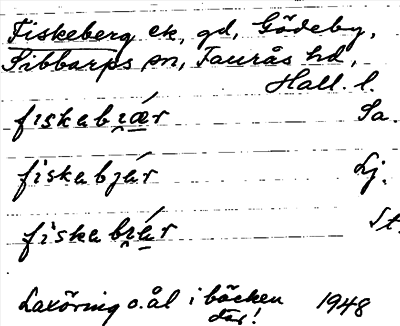 Fiskeberg ek, gd, Gödeby,
Sibbarps sn, Faurås hd,
Hall. l.
fiskabi̯ǽr Sa.
fiskabjár Lj.
fiskabi̯ár St.
Laxöring o. ål i bäcken 1948
där!